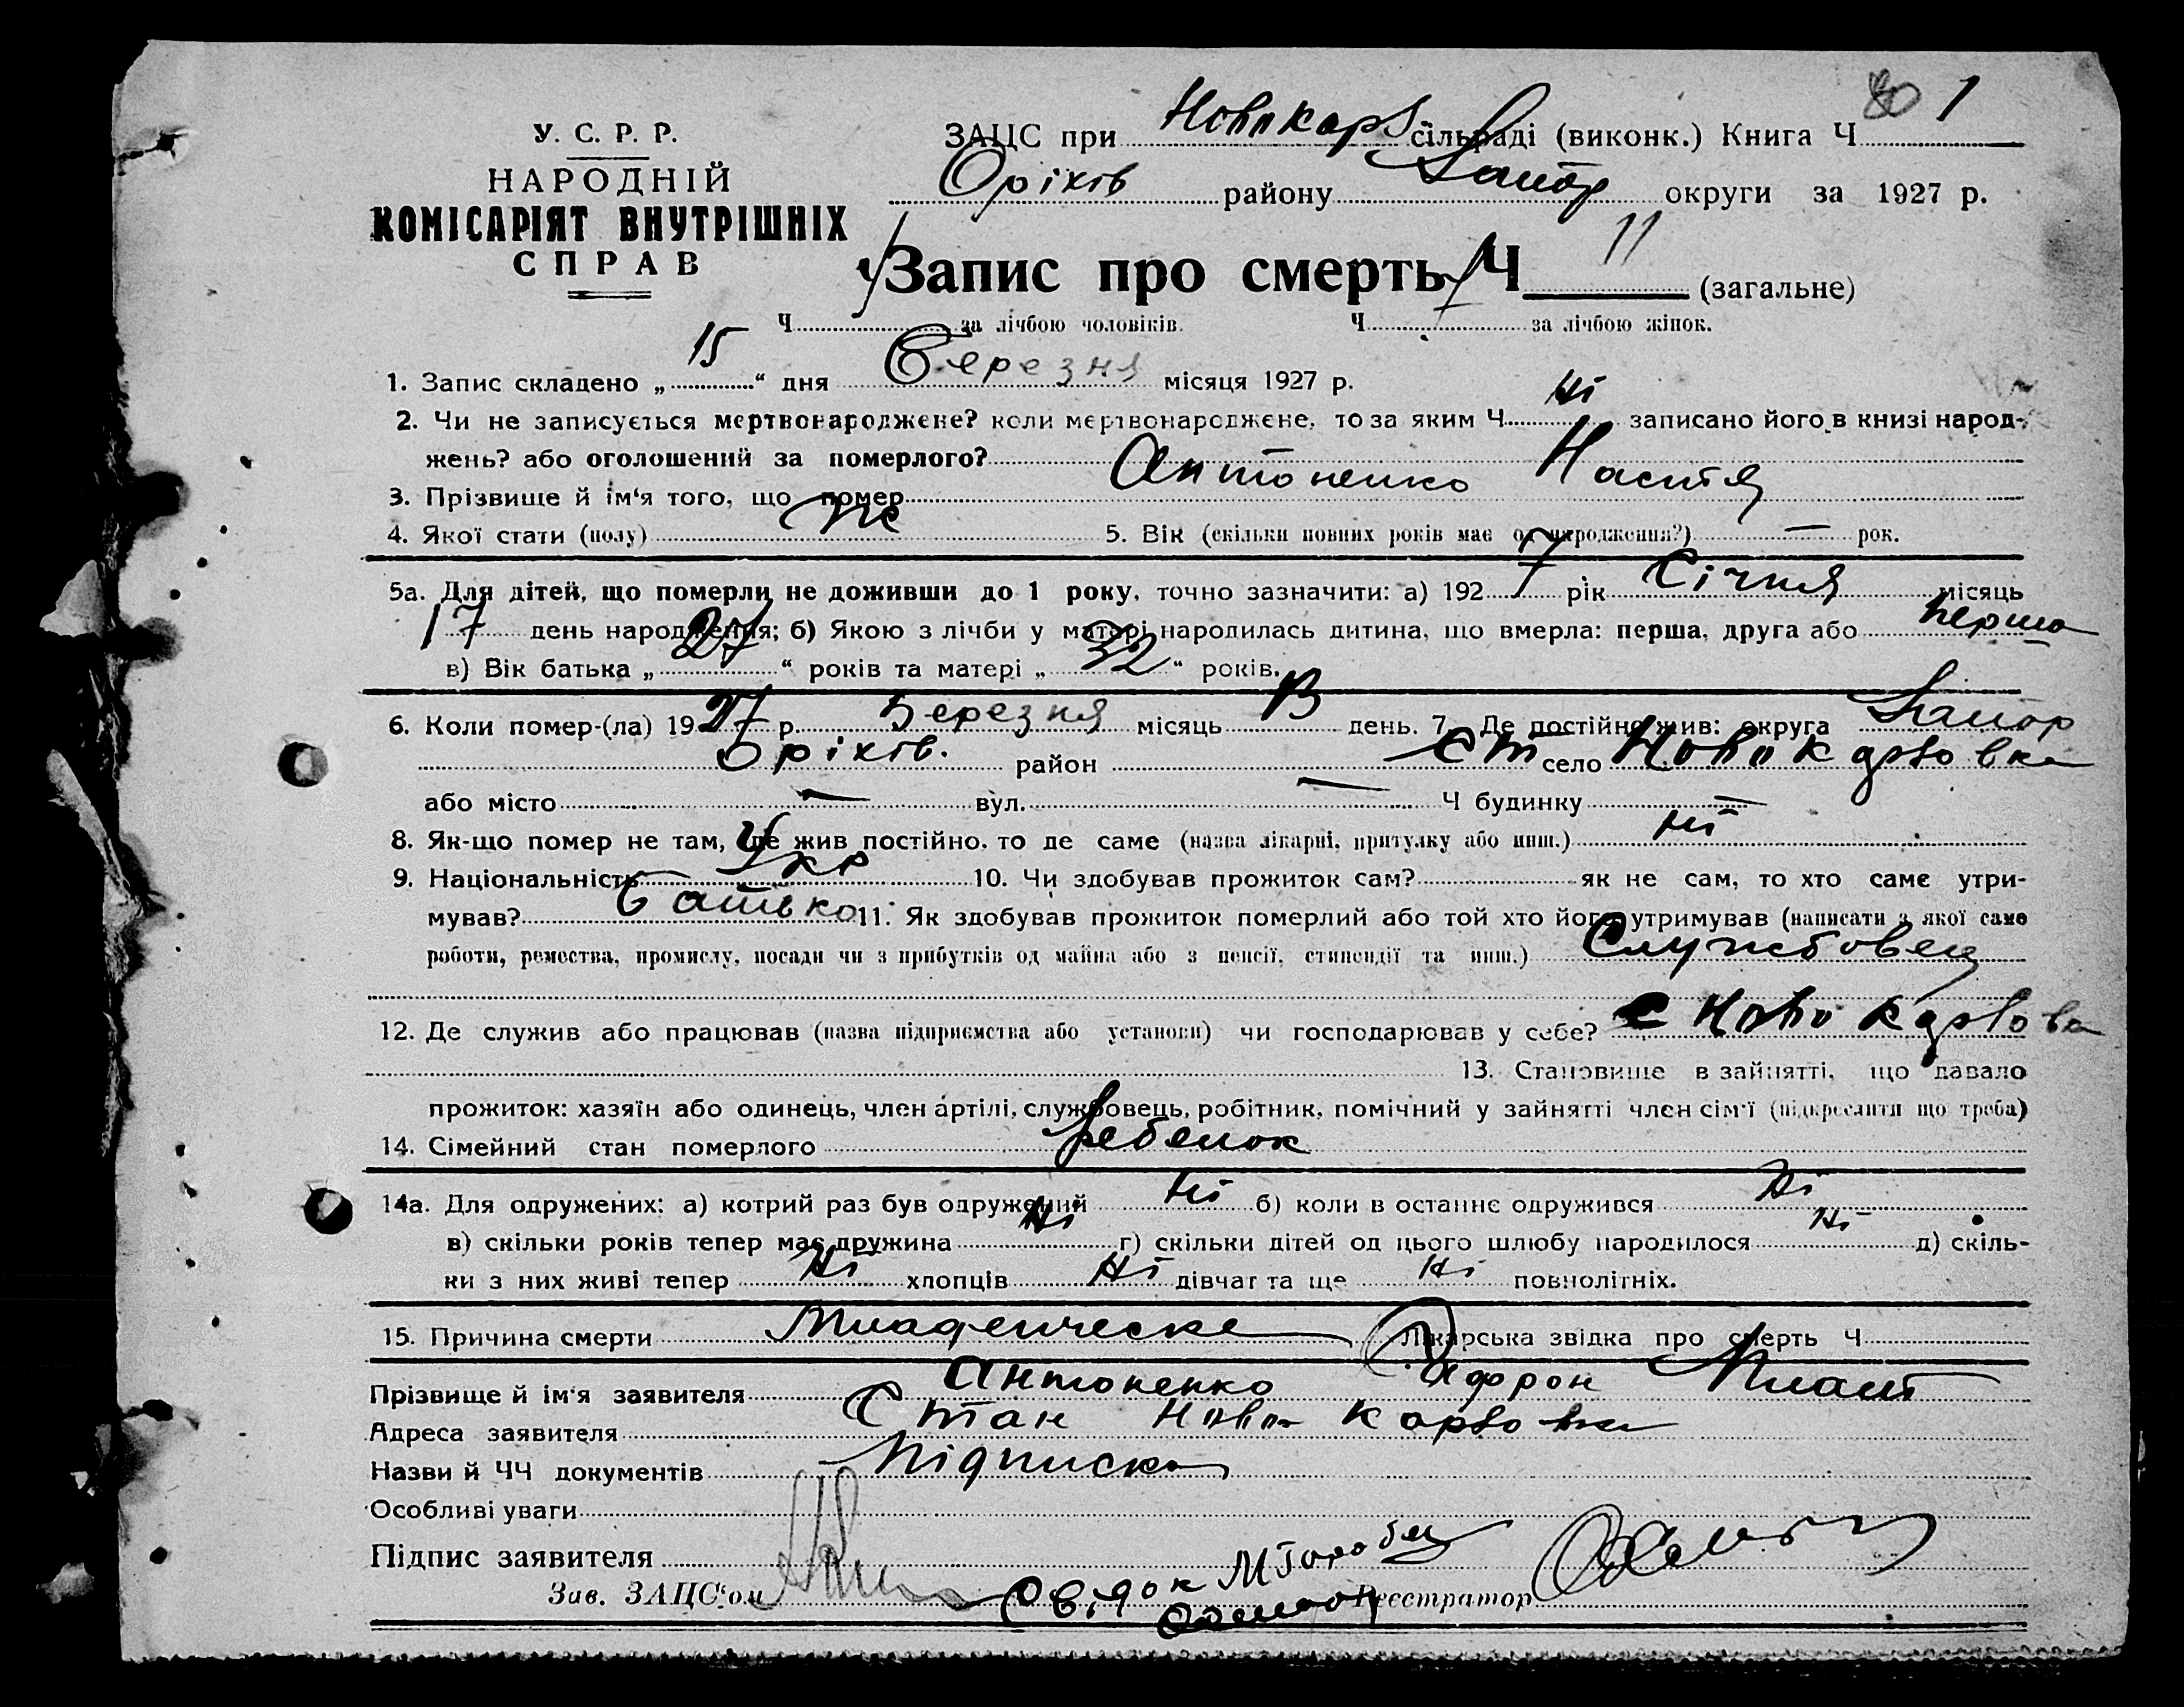 У. С. Р. Р.
НАРОДНІЙ
КОМІСАРІЯТ ВНУТРІШНІХ
СПРАВ
ЗАЦС при Новокарл сільраді (виконк.) Книга Ч 1
Оріхів району Запор округи за 1927 р.
Запис про смерть Ч 11 (загальне)
Ч за лічбою чоловіків. Ч за лічбою жінок.
1. Запис складено „ 15 “ дня Березня місяця 1927 р.
2. Чи не записується мертвонароджене? коли мертвонароджене, то за яким Ч Ні записано його в книзі народ-
жень? або оголошений за померлого?
3. Прізвище й ім‘я того, що помер Антоненко Настя
4. Якої стати (полу) же 5. Вік (скільки повних років має од народження?) — рок.
5а. Для дітей, що померли не доживши до 1 року, точно зазначити: а) 192 7 рік Січня місяць
17 день народження; б) Якою з лічби у матері народилась дитина, що вмерла: перша, друга або перша
в) Вік батька „ 27 “ років та матері „ 32 “ років.
6. Коли помер-(ла) 19 27 р. Березня місяць 13 день. 7. Де постійно жив: округа Запор
Оріхів. район ст село Новокарловка
або місто — вул. — Ч будинку —
8. Як-що помер не там, де жив постійно, то де саме (назва лікарні, притулку або инш.) ні
9. Національність Укр 10. Чи здобував прожиток сам? як не сам, то хто саме утри-
мував? батько 11. Як здобував прожиток померлий або той хто його утримував (написати з якої саме
роботи, ремества, промислу, посади чи з прибутків од майна або з пенсії, стипендії та инш.) Службовец
12. Де служив або працював (назва підприємства або установи) чи господарював у себе? с Ново Карлова
13. Становище в зайнятті, що давало
прожиток: хазяїн або одинець, член артілі, службовець, робітник, помічний у зайнятті член сім‘ї (підкреслити що треба)
14. Сімейний стан померлого ребенок
14а. Для одружених: а) котрий раз був одружений Ні б) коли в останнє одружився Ні
в) скільки років тепер має дружина Ні г) скільки дітей од цього шлюбу народилося Ні д) скіль-
ки з них живі тепер Ні хлопців Ні дівчат та ще Ні повнолітніх.
15. Причина смерти Младенческе Лікарська звідка про смерть Ч
Прізвище й ім‘я заявителя Антоненко
Адреса заявителя Стан Ново Карловка
Назви й ЧЧ документів Підписка
Особливі уваги
Підпис заявителя
Зав. ЗАЦС‘ом Свідок Реєстратор